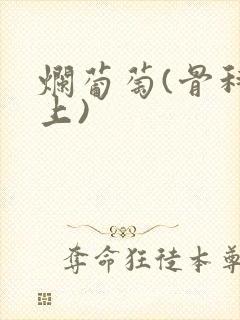 爛葡萄(骨科
上)
奪命狂徒本尊